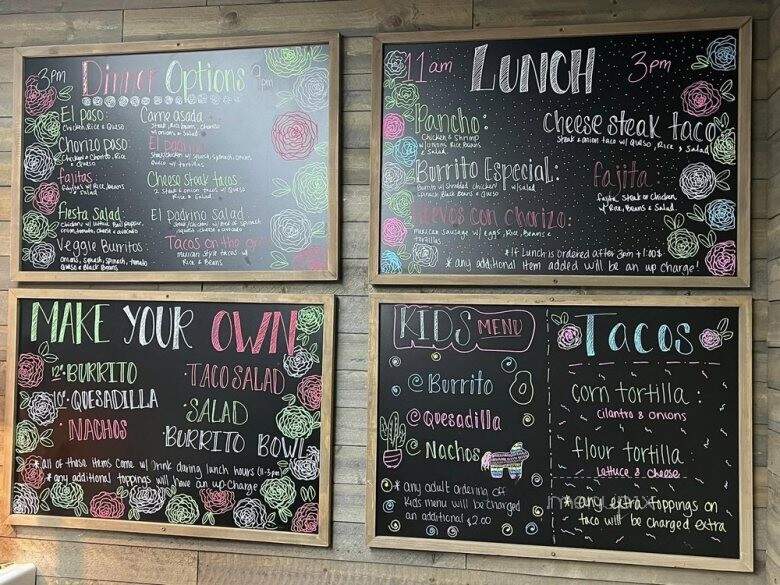 3pm Dinner Options 9pm
El paso:
Chicken, Rice & Queso
Chorizo paso:
Chicken & Chorizo, Rice
& Queso
fajitas:
Fajitas w/ Rice, Beans
& Salad
Fiesta Salad:
onion, tomato, cheese & avocado
Veggie Burritos
onions, squash, spinach, tomato
Queso & Black Beans
Carne asada:
Steak, Rice, beans, chorizo
w/ onions & Salad
El
Steak/chicken w/ squash, spinach, onions,
Queso w/ tortillas
Cheese steak tacos
2 Steak & onion tacos w/ Queso
Rice & Salad
El padrino salad
squash, cheese & avocado
Tacos on the
mexican style tacos w/
Rice & Beans
11am LUNCH 3pm
Pancho:
Chicken & Shrimp
w/ onions Rice Beans
& Salad
Burrito Especial:
Burrito w/ Shredded chicken w/ salad
Spinach Black Beans & Queso
Huevos con chorizo:
mexican sausage w/ eggs, Rice, Beans &
tortillas
Cheese steak taco
Steak & onion taco w/ Queso, Rice & Salad
fajita:
fajita, Steak or Chicken
w/ Rice, Beans & Salad
*If Lunch is ordered after 3pm +1.00$
*any additional item added will be an up charge!
MAKE YOUR OWN
12"·BURRITO
10"·QUESADILLA
·NACHOS
·TACO SALAD
·SALAD
·BURRITO BOWL
*all of these items come w/ Drink during lunch hours (11-3pm)
*any additional toppings will have an up charge
KIDS MENU
Burrito
Quesadilla
Nachos
*Any adult ordering off
Kids menu will be charged
an additional $2.00
Tacos
corn tortilla:
cilantro & onions
flour tortilla:
Lettuce & Cheese
*any extra toppings on
taco will be charged extra